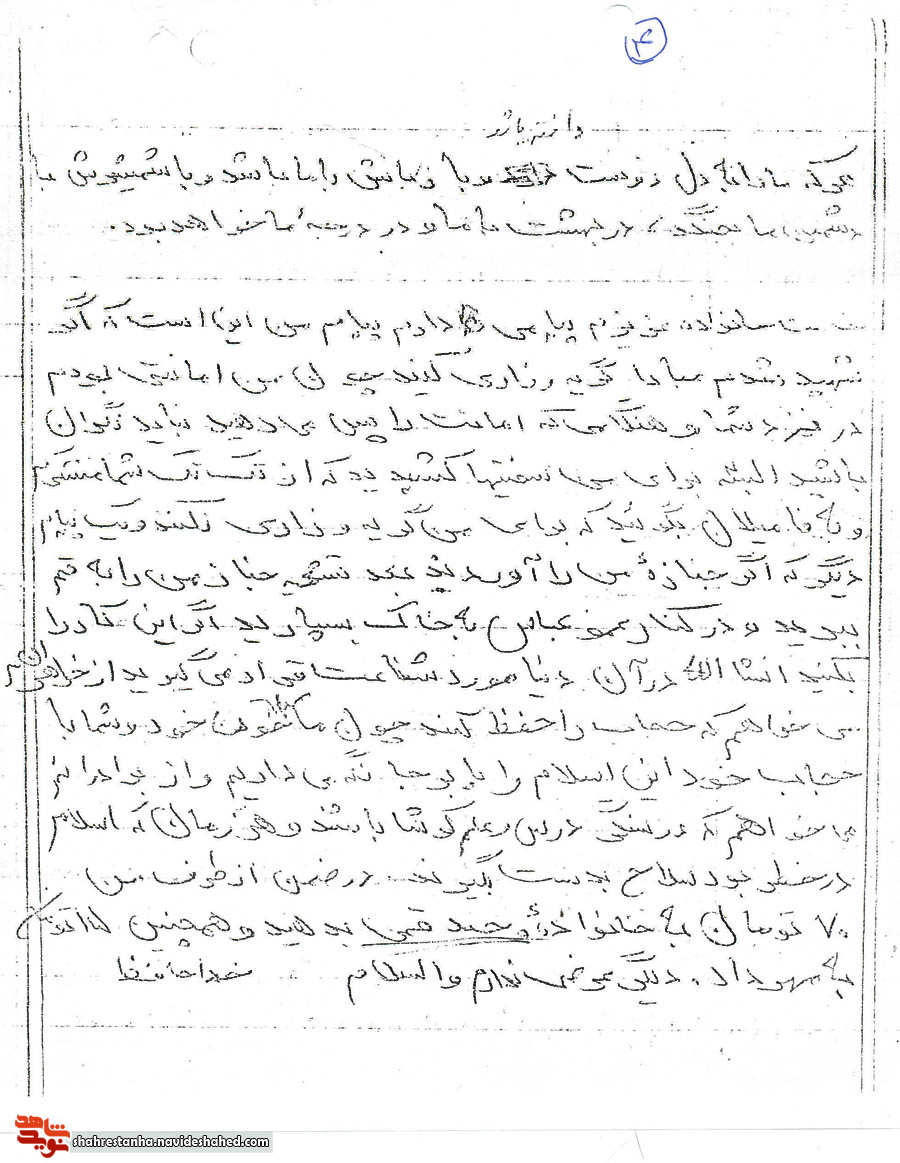 ۴
داشته باشد
هر که ما را به دل دوست و با زبانش با ما باشد و با شمشیرش با
دشمن ما بجنگد، در بهشت با ما و در درجهٔ ما خواهد بود.
خانواده عزیزم پیامی دارم پیام من این است که اگر
شهید شدم مبادا گریه و زاری کنید چون من امانتی بودم
در نزد شما و هنگامی که امانت را پس می دهید نباید نگران
باشید البته برای من سختیها کشیدید که از تک تک شما متشکرم
و به فامیلان بگوئید که برای من گریه و زاری نکنند و یک پیام
دیگر که اگر جنازهٔ من را آوردید بعد تشیع جنازه من را به قم
ببرید و در کنار عمو عباس به خاک بسپارید اگر این کار را
بکنید انشا الله در آن دنیا مورد شفاعت قرار می گیرید از خواهرانم
می خواهم که حجاب را حفظ کنند چون ما با خون خود و شما با
حجاب خود این اسلام را پا بر جا نگه می داریم و از برادرانم
می خواهم که در سنگر درس و علم کوشا باشند و هر زمان که اسلام
در خطر بود سلاح بدست بگیرند. در ضمن از طرف من
۷۰ تومان به خانوادهٔ وحید قمی بدهید و همچنین
به مهرداد. دیگر عرضی ندارم والسلام خداحافظ
شاهد
نوید
shahrestanha.navideshahed.com